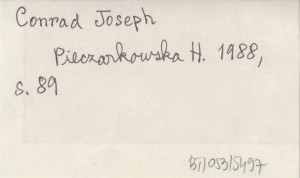 Conrad Joseph
Pieczarkowska H. 1988,
s. 89
BI/053/5497